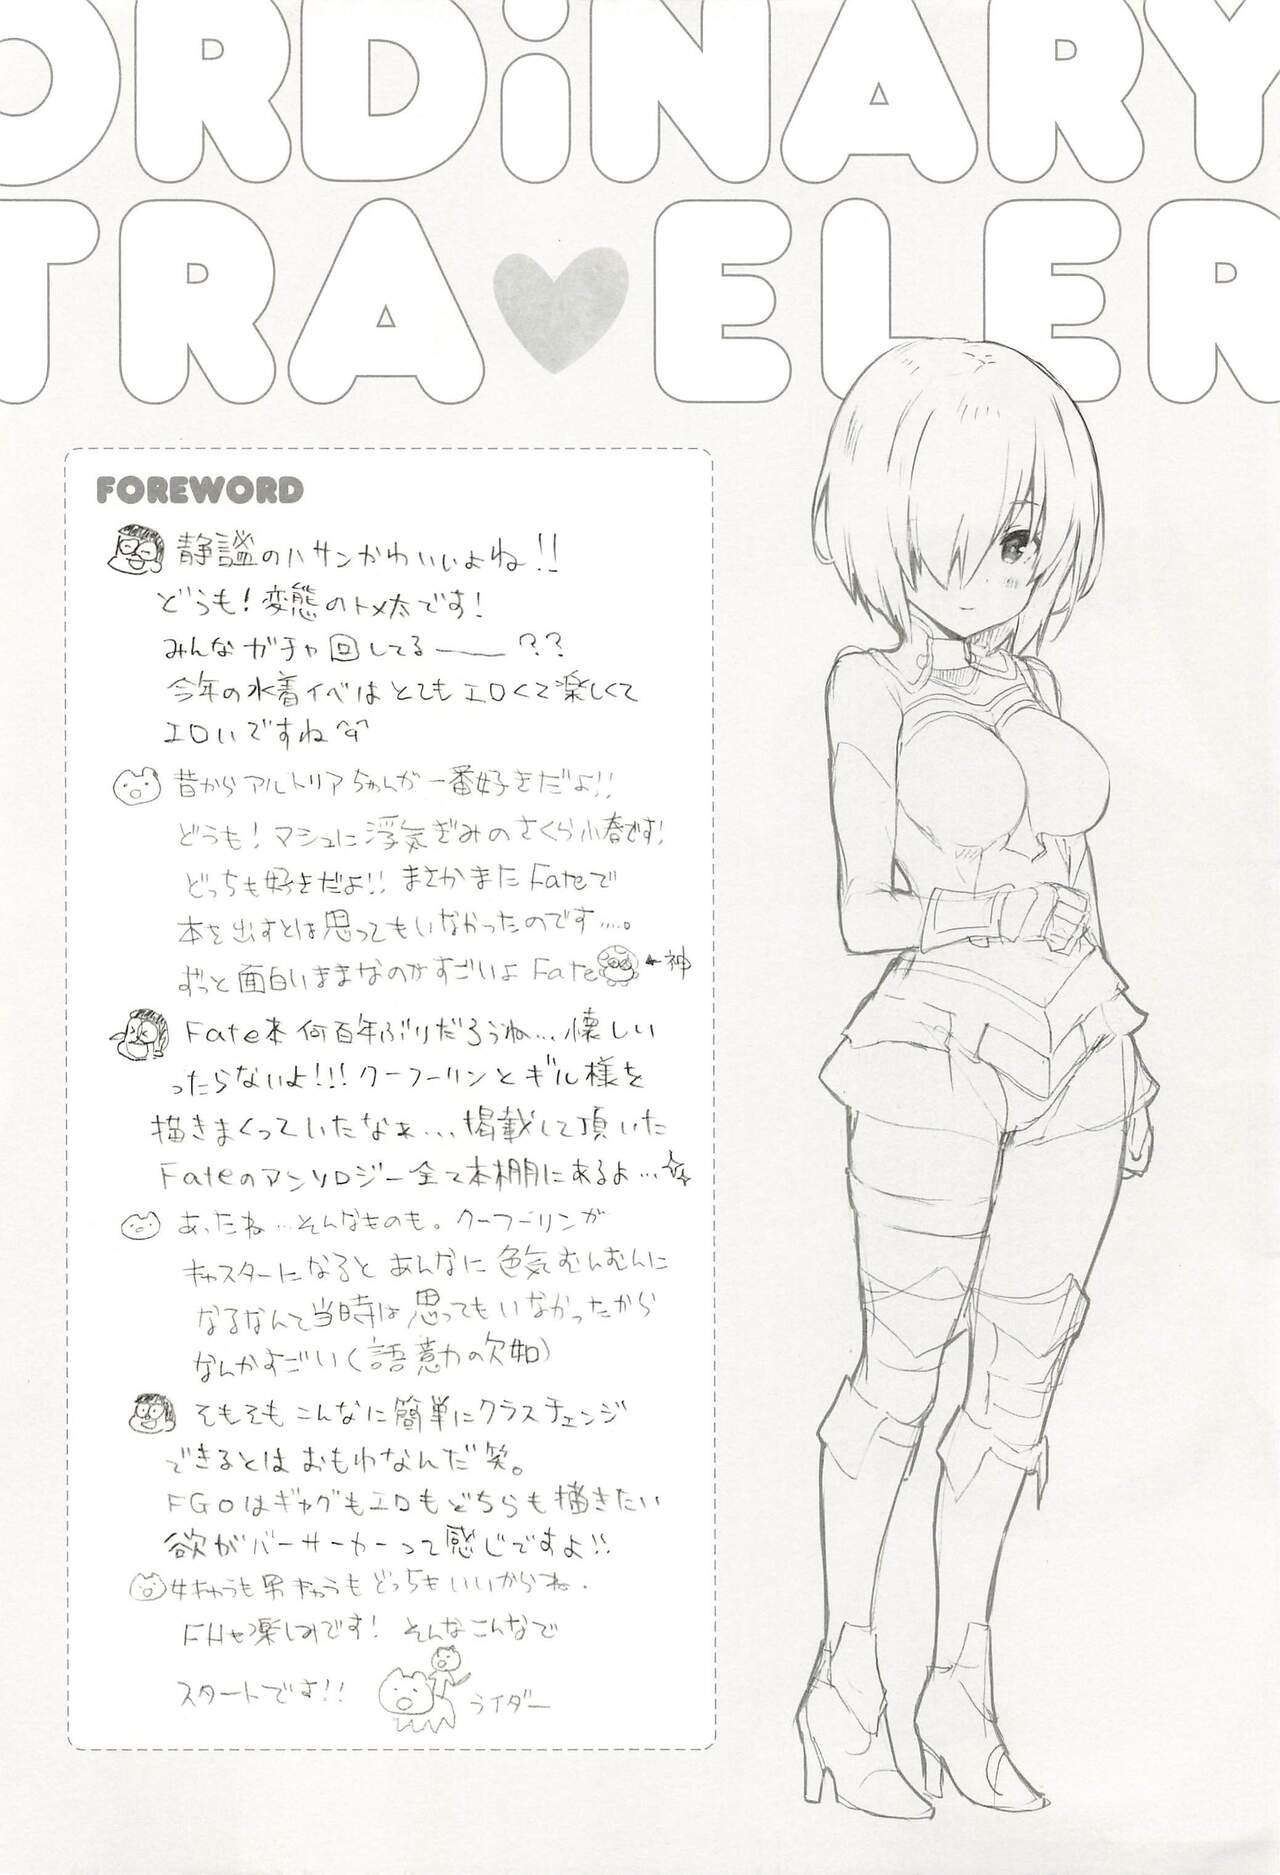 ORDiNARY
TRA♥ELER
FOREWORD
静謐のハサンかわいいよね!!
どうも!変態のトメ太です!
みんなガチャ回してるー??
今年の水着イベはとてもエロくて楽しくて
エロいですね
昔からアルトリアちゃんが一番好きだよ!!
どうも!マシュに浮気ぎみのさくら小春です!
どっちも好きだよ!! まさかまたFateで
本を出すとは思ってもいなかったのです…。
ずっと面白いままなのがすごいよ Fate ←神
Fate本何百年ぶりだろうね…懐しい
ったらないよ!!!クーフーリンとギル様を
描きまくっていたなぁ…掲載して頂いた
Fateのアンソロジー全て本棚にあるよ…☆
あったね…そんなものも。クーフーリンが
キャスターになるとあんなに色気むんむんに
なるなんて当時は思ってもいなかったから
なんかすごい(語意力の欠如)
そもそもこんなに簡単にクラスチェンジ
できるとはおもわなんだ笑。
FGOはギャグもエロもどちらも描きたい
欲がバーサーカーって感じですよ!!
キャラも男キャラもどっちもいいからね.
FHも楽しみです! そんなこんなで
スタートです!!
ライダー